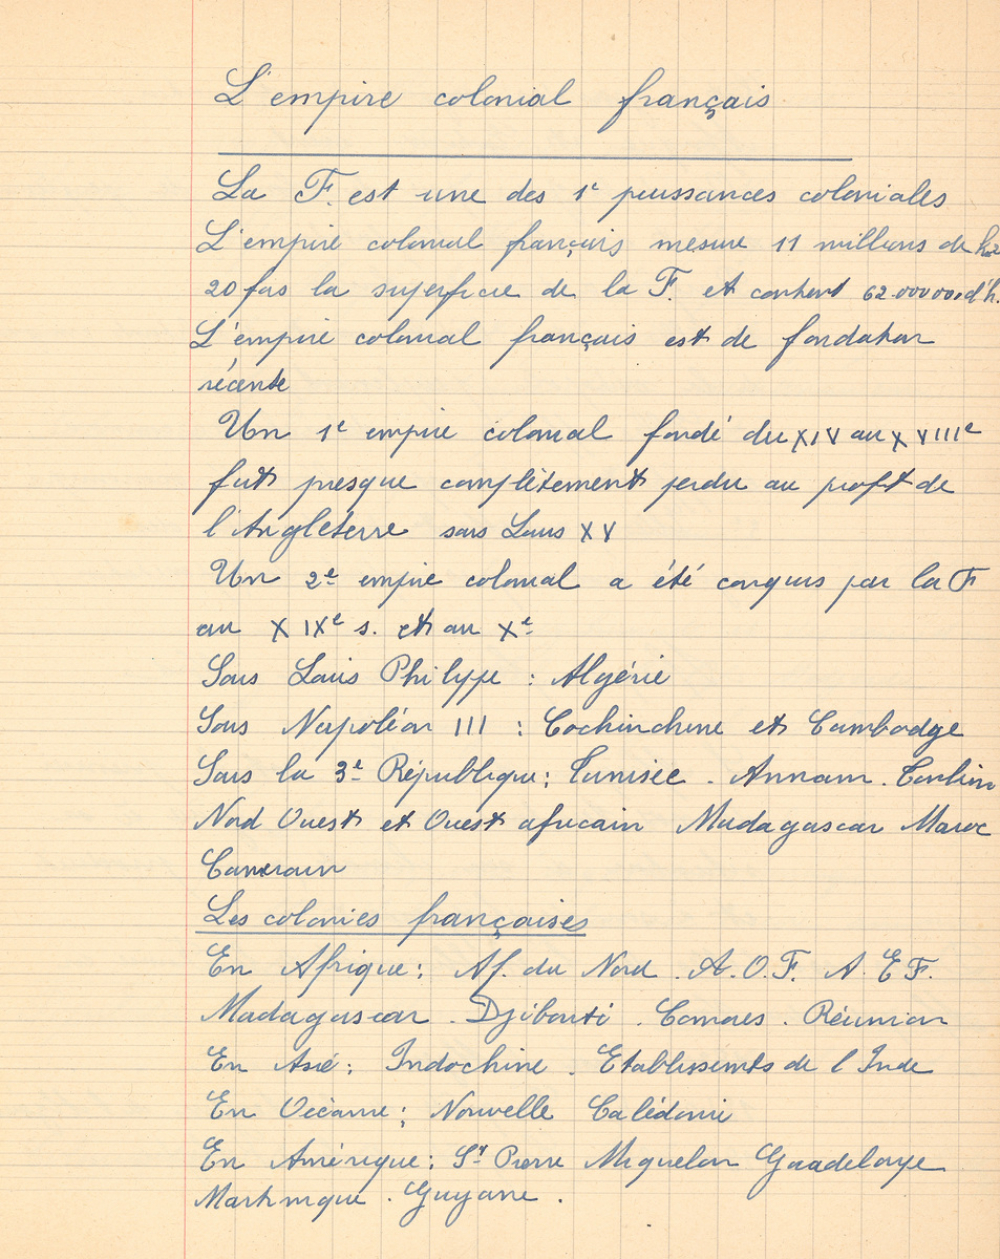 L'empire colonial français
La F. est une des 1e puissances coloniales
L'empire colonial français mesure 11 millions de k2
20 fois la superficie de la F. et contient 62.000 000 d'h.
L'empire colonial français est de fondation
récente
Un 1e empire colonial fondé du XIV au XVIIIe
fut presque complètement perdu au profit de
l'Angleterre sous Louis XV
Un 2e empire colonial a été conquis par la F
au XIXe s. et au Xe
Sous Louis Philippe : Algérie
Sous Napoléon III : Cochinchine et Cambodge
Sous la 3e République : Tunisie . Annam . Tonkin
Nord Ouest et Ouest africain Madagascar Maroc
Cameroun
Les colonies françaises
En Afrique : Af. du Nord . A.O.F. A.EF.
Madagascar . Djibouti . Comores . Réunion
En Asie : Indochine . Etablisements de l Inde
En Océanie : Nouvelle Calédonie
En Amérique : St Pierre Miquelon Guadeloupe
Martinique . Guyane .